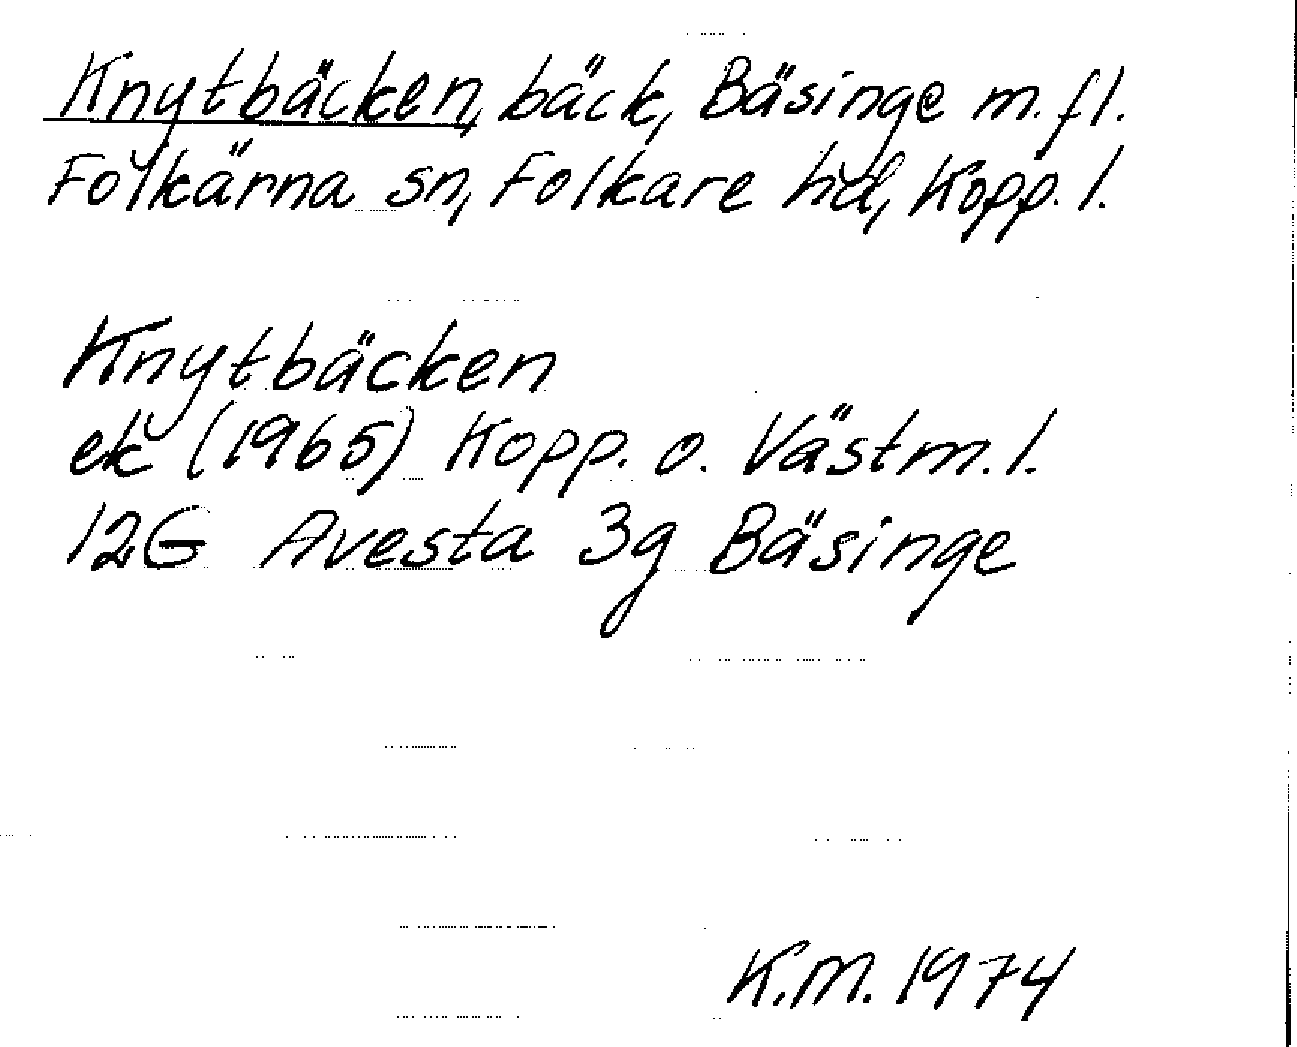 Knytbäcken, bäck, Bäsinge m.fl.
Folkärna sn, Folkare hd, Kopp. l.
Knytbäcken
ek (1965) Kopp. o. Västm. l.
12G Avesta 3g Bäsinge
K.M. 1974